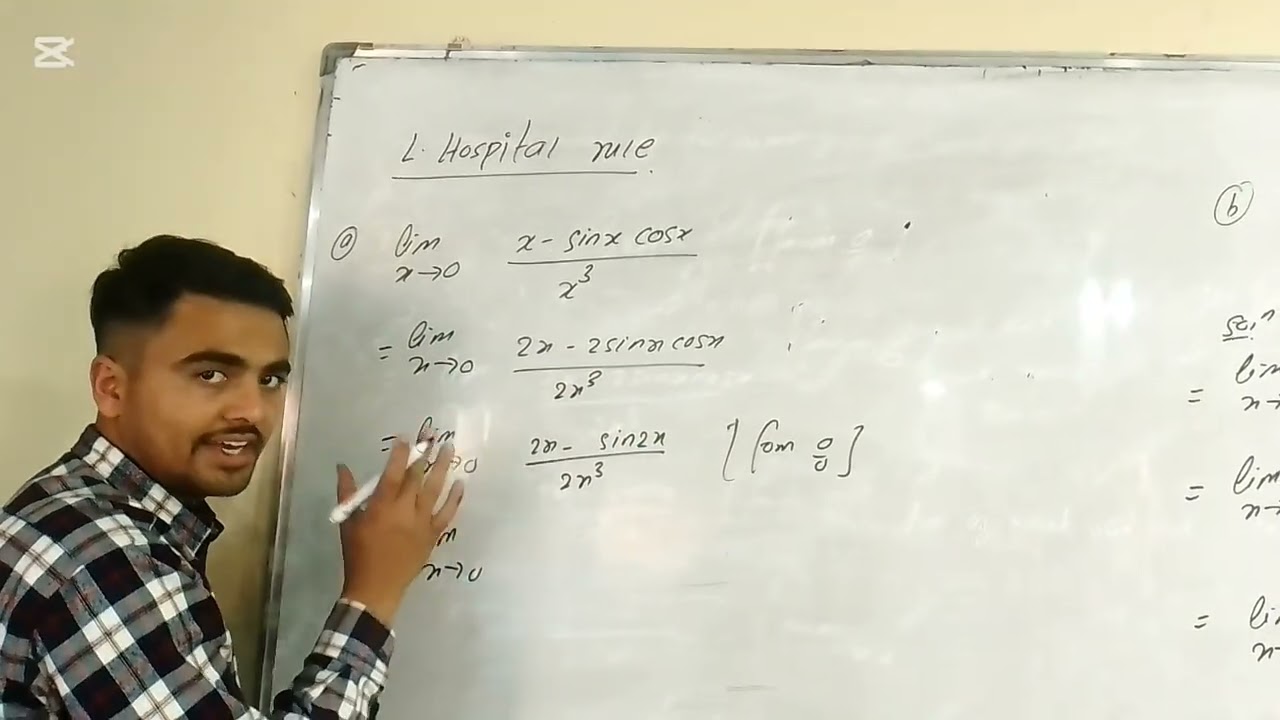 L. Hospital rule.
(a) lim x→0 x - sinx cosx / x³
= lim x→0 2x - 2sinx cosx / 2x³
= lim x→0 2x - sin2x / 2x³ [form 0/0]
x→0
(b)
Solⁿ
= lim
= lim
= lim